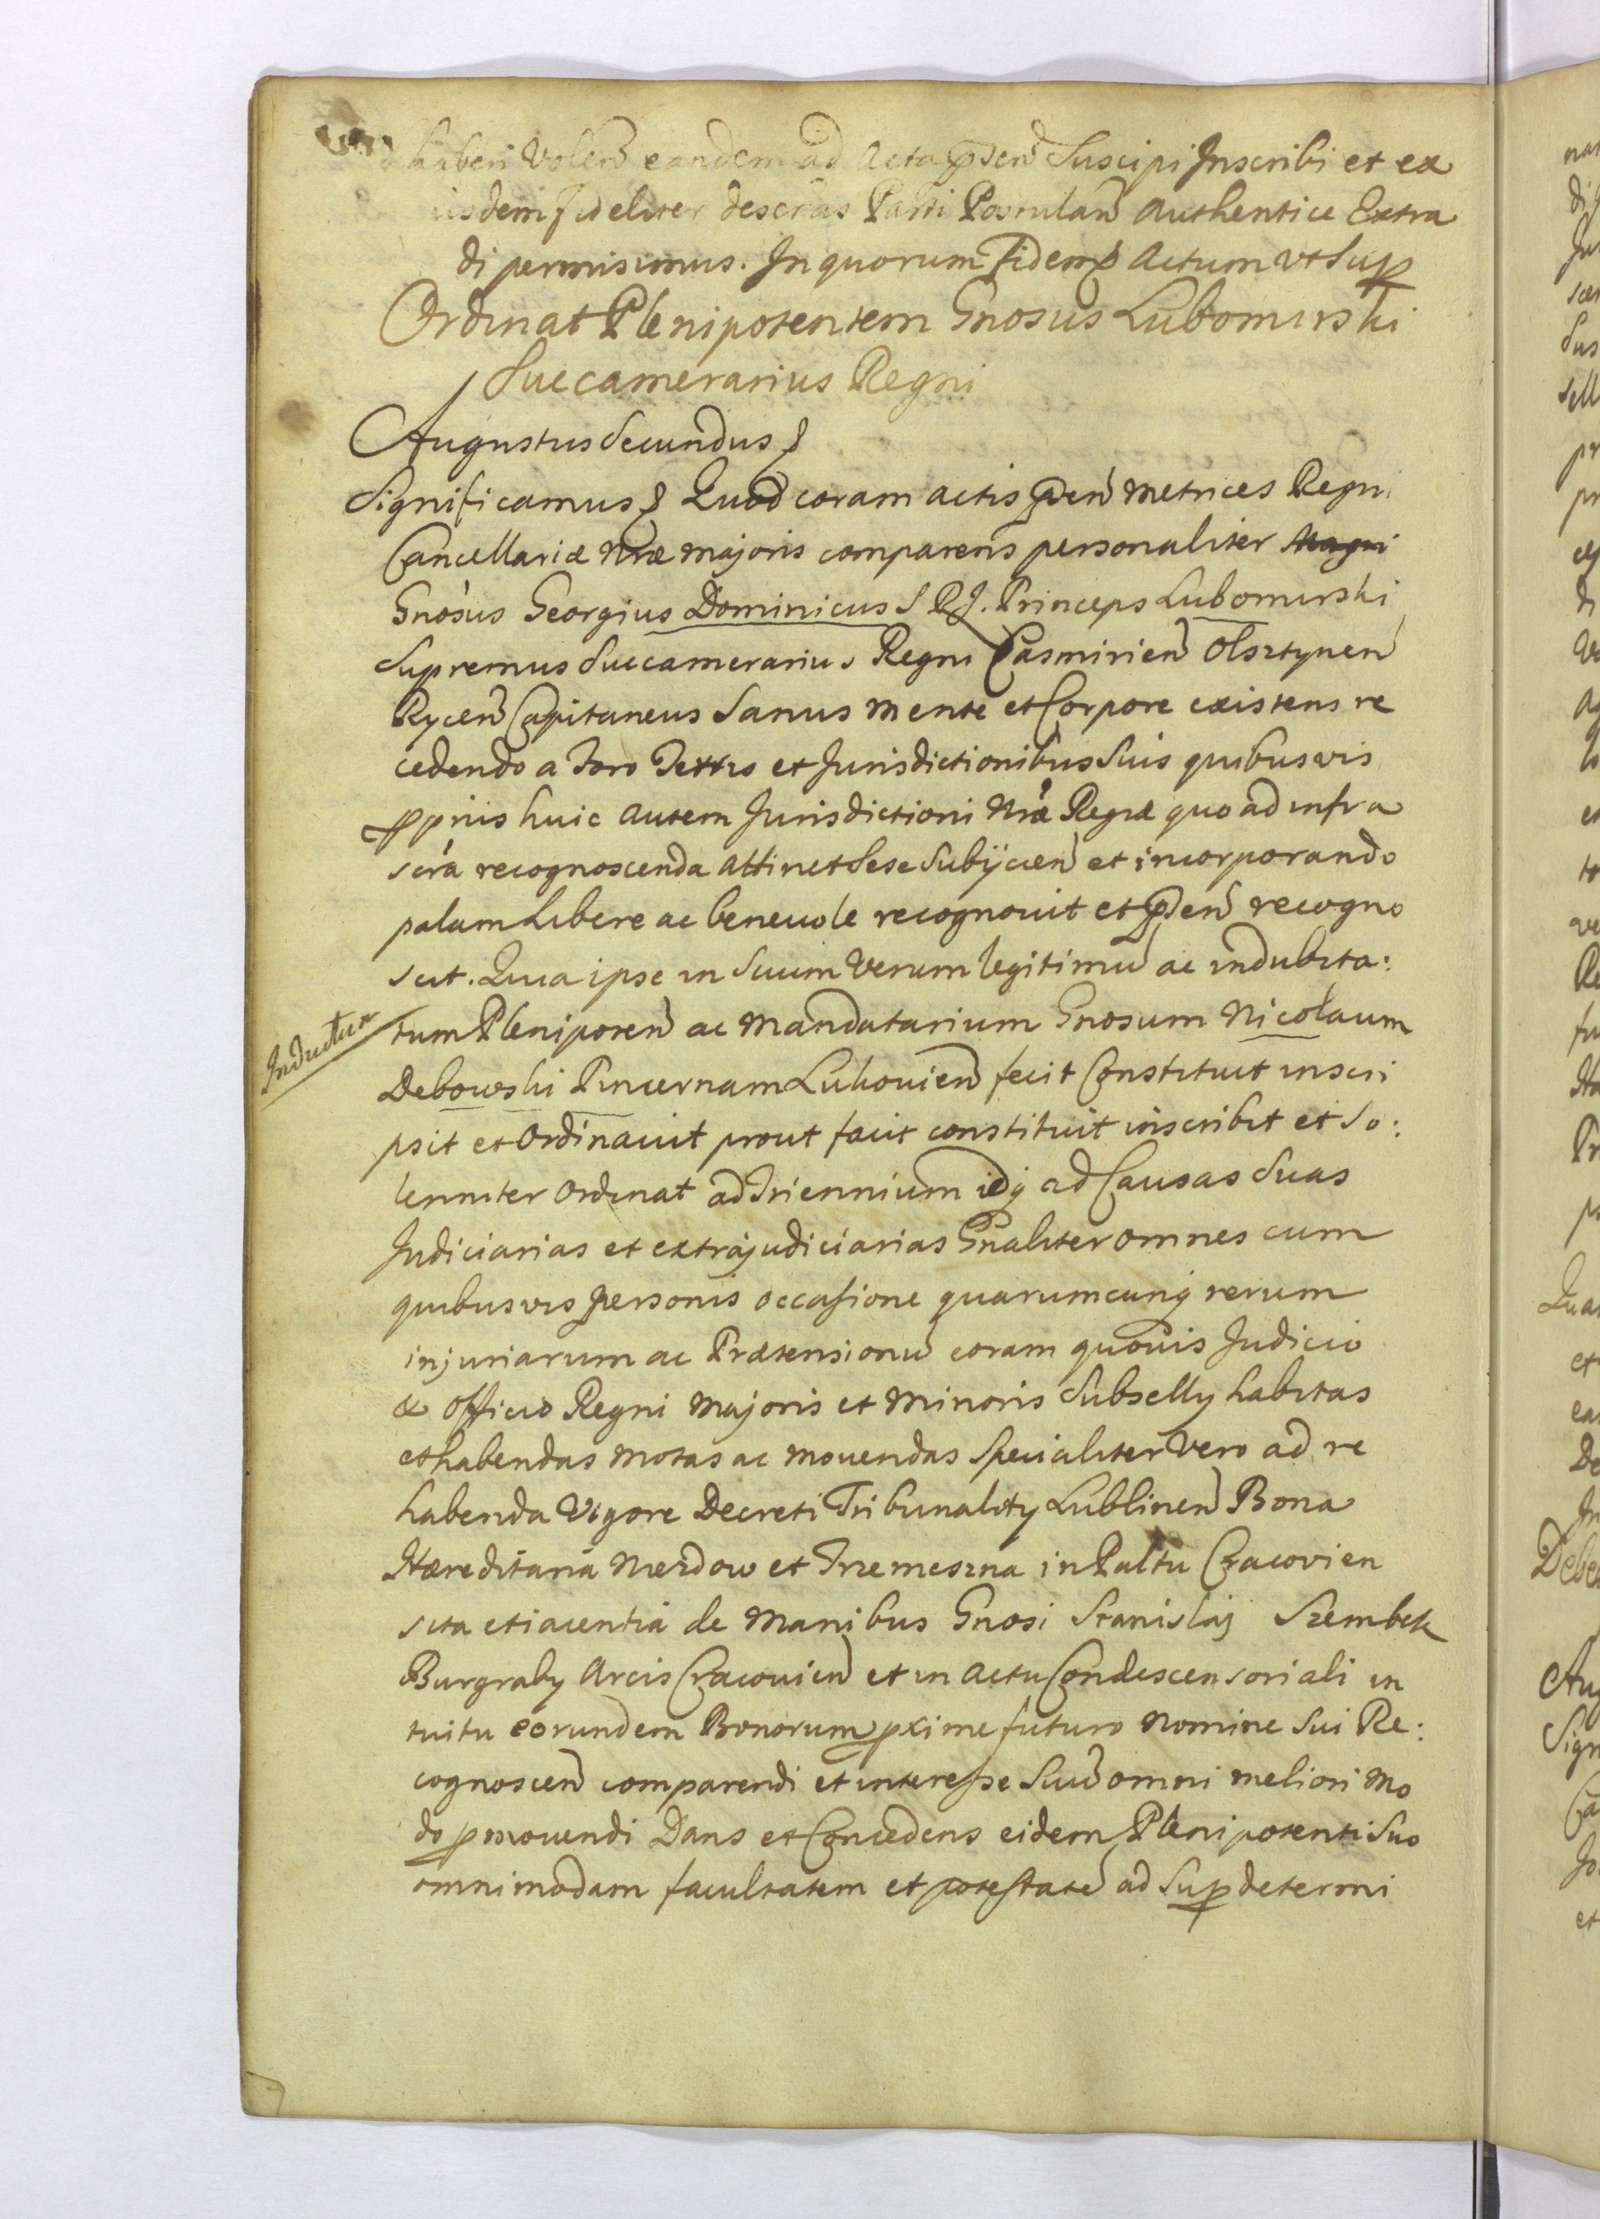 haberi Volen̄ eandem ad Acta p̄sen̄ Suscipi Inscribi et ex
iisdem fideliter descr̄as Parti Postulan̄ Authentice Extra
di permisimus. In quorum fidem & Actum ut Sup
Ordinat Plenipotentem Gnosus Lubomirski
Succamerarius Regni
Augustus Secundus &
Significamus & Quod coram actis p̄sen̄ Metrices Regni
Cancellariæ Nræ majoris comparens personaliter Magni
Gnosus Georgius Dominicus S R J. Princeps Lubomirski
Supremus Succamerarius Regni Casmirien̄ Olsztynen̄
Rycen̄ Capitaneus Sanus Mente et Corpore existens re
cedendo a Foro Terrio et Jurisdictionibus Suis quibusvis
ppriis huic autem Jurisdictioni Nræ Regiæ quo ad infra
scra recognoscenda attinet Sese Subijcien̄ et incorporando
palam Libere ac benevole recognovit et p̄sen̄ recogno
scit. Quia ipse in Suum Verum legitimū ac indubita:
Inductum
tum Plenipoten̄ ac Mandatarium Gnosum Nicolaum
Debowski Pincernam Lukovien̄ fecit Constituit inscri
psit et Ordinavit prout facit constituit inscribit et So:
lenniter Ordinat ad Triennium idq ad Causas Suas
Judiciarias et extrajudiciarias Gnaliter omnes cum
quibusvis personis occasione quarumcunq rerum
injuriarum ac Prætensionū coram quovis Judicio
& Officio Regni Majoris et Minoris Subselly habitas
et habendas motas ac movendas Specialiter Vero ad re
habenda Vigore Decreti Tribunality Lublinen̄ Bona
Hæreditaria Nierdow et Trzemeszna in Paltu Cracovien
sita et iacentia de Manibus Gnosi Stanislaj Szembek
Burgraby Arcis Cracovien̄ et in Actu Condescensoriali in
tuitu eorundem Bonorum pxime futuro Nomine Sui Re:
cognoscen̄ comparendi et interesse Suū omni meliori Mo
do pmovendi Dans et Concedens eidem Plenipotenti Suo
omnimodam facultatem et potestatē ad Sup determi